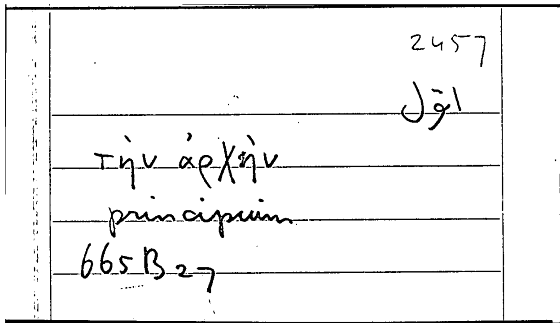 2457
اوّل
τὴν ἀρχὴν
principium
665 B 27